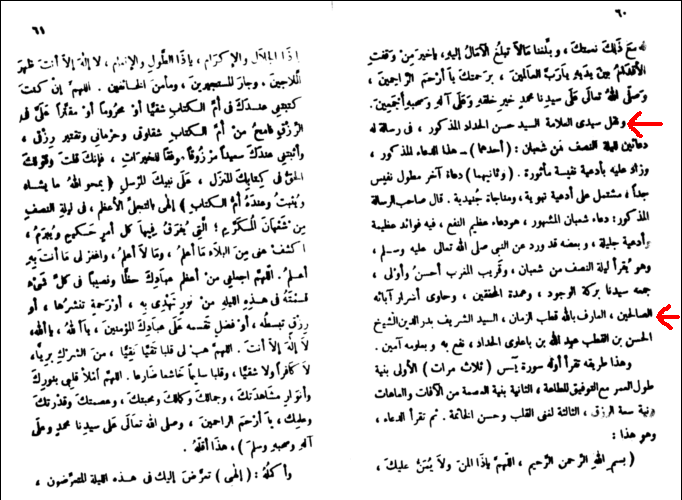 ٦٠
مع ذلك نستك ، وبلغنا مالا تبلغ الآمال إليه، ياخير من وقفت
الأقدام بين يديه يارب العالمين ، برحمتك يا أرحم الراحمين ،
وصلى الله تعالى على سيدنا محمد خير خلقه وعلى آله وصحبه أجمعين.
ونقل سيدى العلامة السيد حسن الحداد المذكور ، فى رسالة له
دعائين ليلة النصف من شعبان : (أحدهما) ــ هذا الدعاء المذكور ،
وزاد عليه بأدعية نفيسة مأثورة . (وثانيهما) دعاء آخر مطول نفيس
جداً ، مشتمل على أدعية نبوية ، ومناجاة جنيدية . قال صاحب الرسالة
المذكور: دعاء شعبان المشهور ، هو دعاء عظيم النفع ، فيه فوائد عظيمة
وأدعية جليلة ، وبعضه قد ورد عن النبي صلى الله تعالى عليه وسلم ،
وهو يُقرأ ليلة النصف من شعبان ، وقريب المغرب أحسن وأولى ،
جمعه سيدنا بركة الوجود ، وعمدة المحققين ، وحاوى أسرار آبائه
الصالحين ، العارف بالله قطب الزمان ، السيد الشريف بدر الدين الشيخ
الحسن بن القطب عبد الله بن باعلوى الحداد ، نفع به و بعلومه آمين .
وهذا طريقه تقرأ أوله سورة يس ( ثلاث مرات ) الأولى بنية
طول العمر مع التوفيق للطاعة ، الثانية بنية العصمة من الآفات والعاهات
ونية سعة الرزق ، الثالثة لغنى القلب وحسن الخاتمة . ثم تقرأ الدعاء ،
وهو هذا :
( بسم الله الرحمن الرحيم ، اللهم ياذا المن ولا يُمَنُّ عليك ،
٦١
ياذا الجلال والإكرام ، ياذا الطول والإنعام ، لا إله إلا أنت ظهر
اللاجين . وجار المستجيرين ، ومأمن الخائفين . اللهم إن كنت
كتبتنى عندك فى أم الكتاب شقيًّا أو محرومًا أو مقتَّرًا علىَّ فى
الرزق فامح من أم الكتاب شقاوتى وحرمانى وتقتير رزقى ،
وأثبتنى عندك سعيداً مرزوقاً موفقاً للخيرات ، فإنك قلت وقولك
الحق فى كتابك المنزل ، على نبيك المرسل ( يمحو الله ما يشاء
ويُثبت وعنده أم الكتاب ) إلهى بالتجلى الأعظم ، فى ليلة النصف
من شعبان المكرم ، التى يُفرق فيها كل أمر حكيم ويُبرم ،
اكشف عنى من البلاء ما أعلم ، وما لا أعلم ، واغفر لى ما أنت به
أعلم . اللهم اجعلنى من أعظم عبادك حظًّا ونصيبًا فى كل شىء
قسمته فى هذه الليلة من نور تهدى به ، أو رحمة تنشرها ، أو
رزق تبسطه ، أو فضل تقسمه على عبادك المؤمنين ، يا الله ، يا الله،
لا إله إلا أنت . اللهم هب لى قلبا تقيًّا نقيًّا ، من الشرك بريًّا ،
لا كافراً ولا شقيًّا ، وقلبا سليما خاشعا ضارعا . اللهم املأ قلبى بنورك
وأنوار مشاهدتك ، وجمالك وكمالك ومحبتك ، وعصمتك وقدرتك
وعلمك ، يا أرحم الراحمين ، وصلى الله تعالى على سيدنا محمد وعلى
آله وصحبه وسلم ) ، هذا أقله .
وأكمله : (إلهى) تعرّض إليك فى هذه الليلة المتعرّضون ،